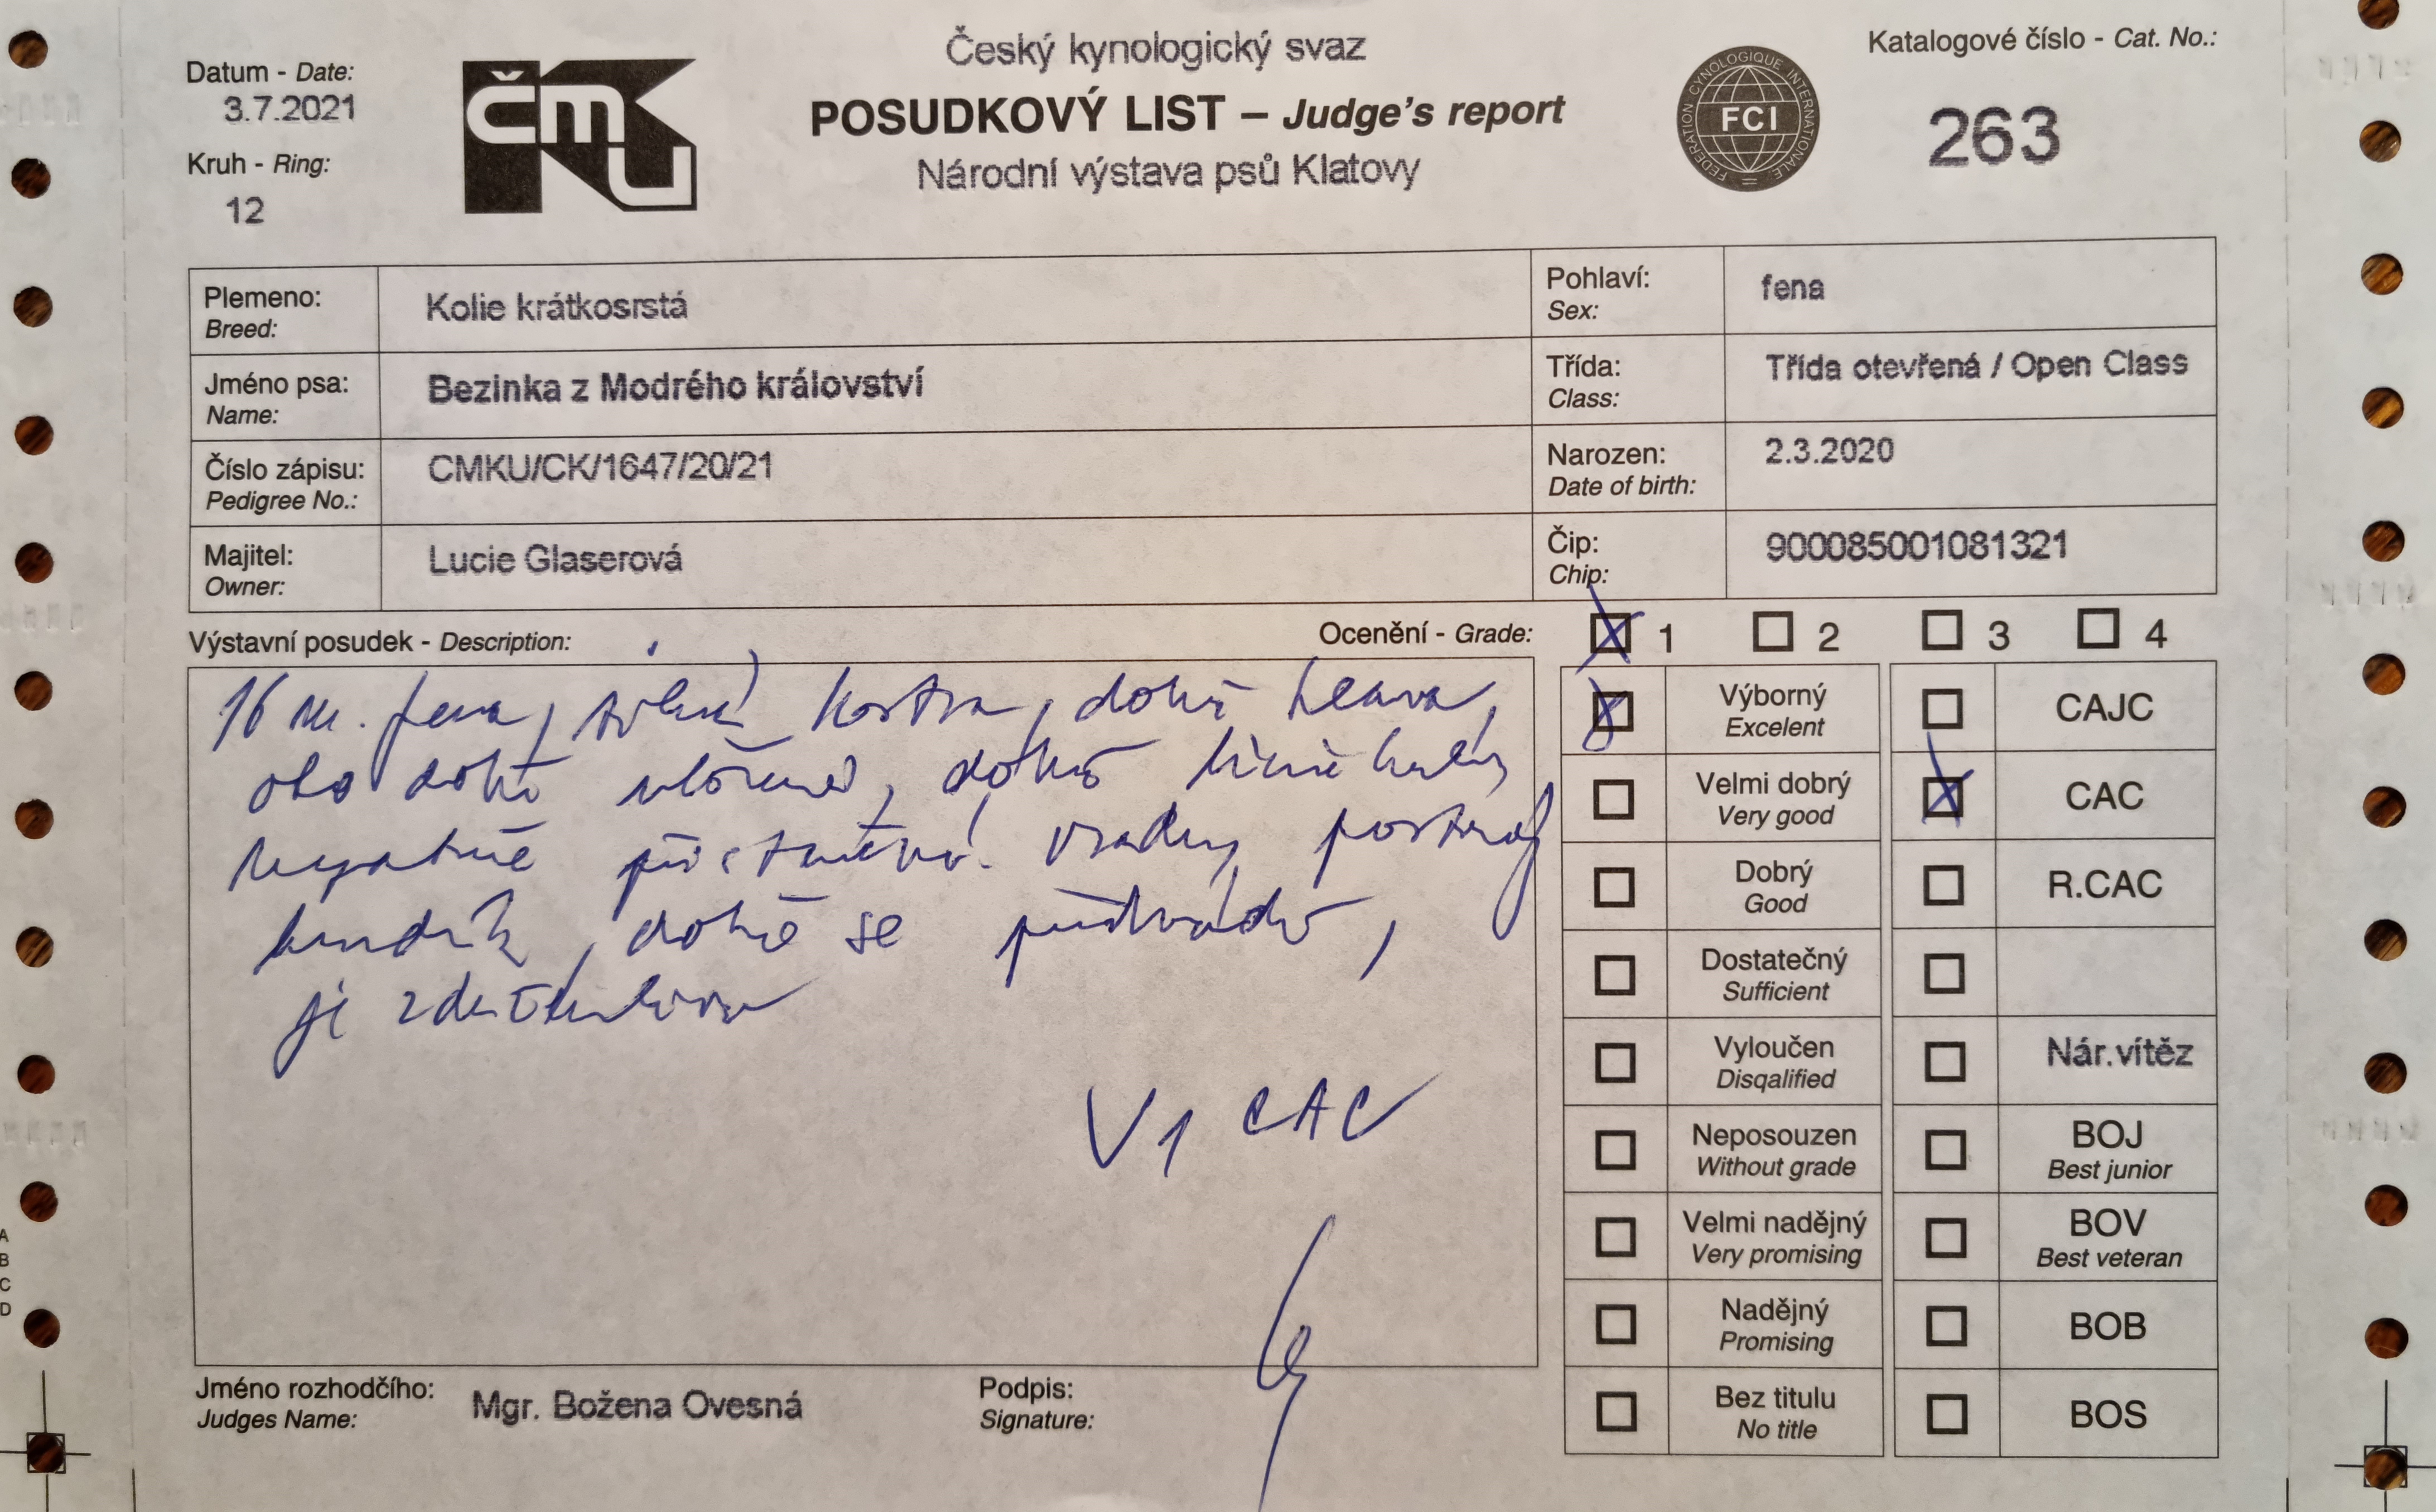 Český kynologický svaz
POSUDKOVÝ LIST – Judge's report
Národní výstava psů Klatovy
Datum - Date:
3.7.2021
Kruh - Ring:
12
ČMKU
FEDERATION CYNOLOGIQUE INTERNATIONALE
FCI
Katalogové číslo - Cat. No.:
263
Plemeno:
Breed:
Kolie krátkosrstá
Pohlaví:
Sex:
fena
Jméno psa:
Name:
Bezinka z Modrého království
Třída:
Class:
Třída otevřená / Open Class
Číslo zápisu:
Pedigree No.:
CMKU/CK/1647/20/21
Narozen:
Date of birth:
2.3.2020
Majitel:
Owner:
Lucie Glaserová
Čip:
Chip:
900085001081321
Výstavní posudek - Description:
Ocenění - Grade:
1 2 3 4
16 m. fena, kostra, dobrá hlava,
oko dobře vložené, dobré
postroj
hrudník, dobře se předvádí,
je
V1 CAC
Výborný
Excelent
CAJC
Velmi dobrý
Very good
CAC
Dobrý
Good
R.CAC
Dostatečný
Sufficient
Vyloučen
Disqalified
Nár.vítěz
Neposouzen
Without grade
BOJ
Best junior
Velmi nadějný
Very promising
BOV
Best veteran
Nadějný
Promising
BOB
Bez titulu
No title
BOS
Jméno rozhodčího:
Judges Name:
Mgr. Božena Ovesná
Podpis:
Signature:
A
B
C
D